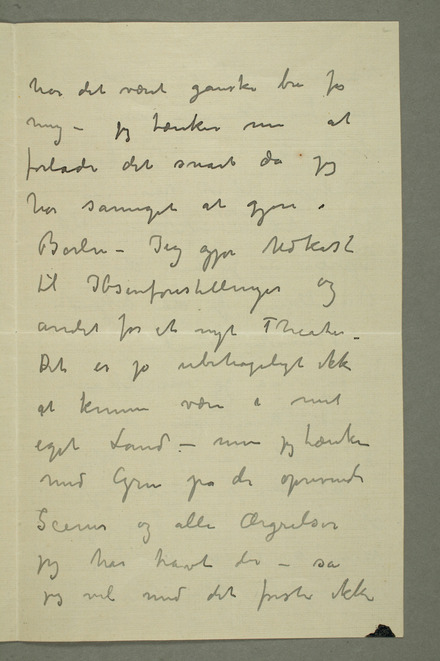 har det været ganske bra for
mig – jeg tænker nu at
forlade det snart da jeg
har saa meget at gjøre i
Berlin – Jeg gjør Udkast
til Ibsenforestillinger og
andet for et nyt Theater.
Det er jo ubehageligt ikke
at kunne være i mit
eget Land – men jeg tænker
med Gru på de oprivende
Scener og alle Ærgrelser
jeg har havt der – så
jeg vil med det første ikke